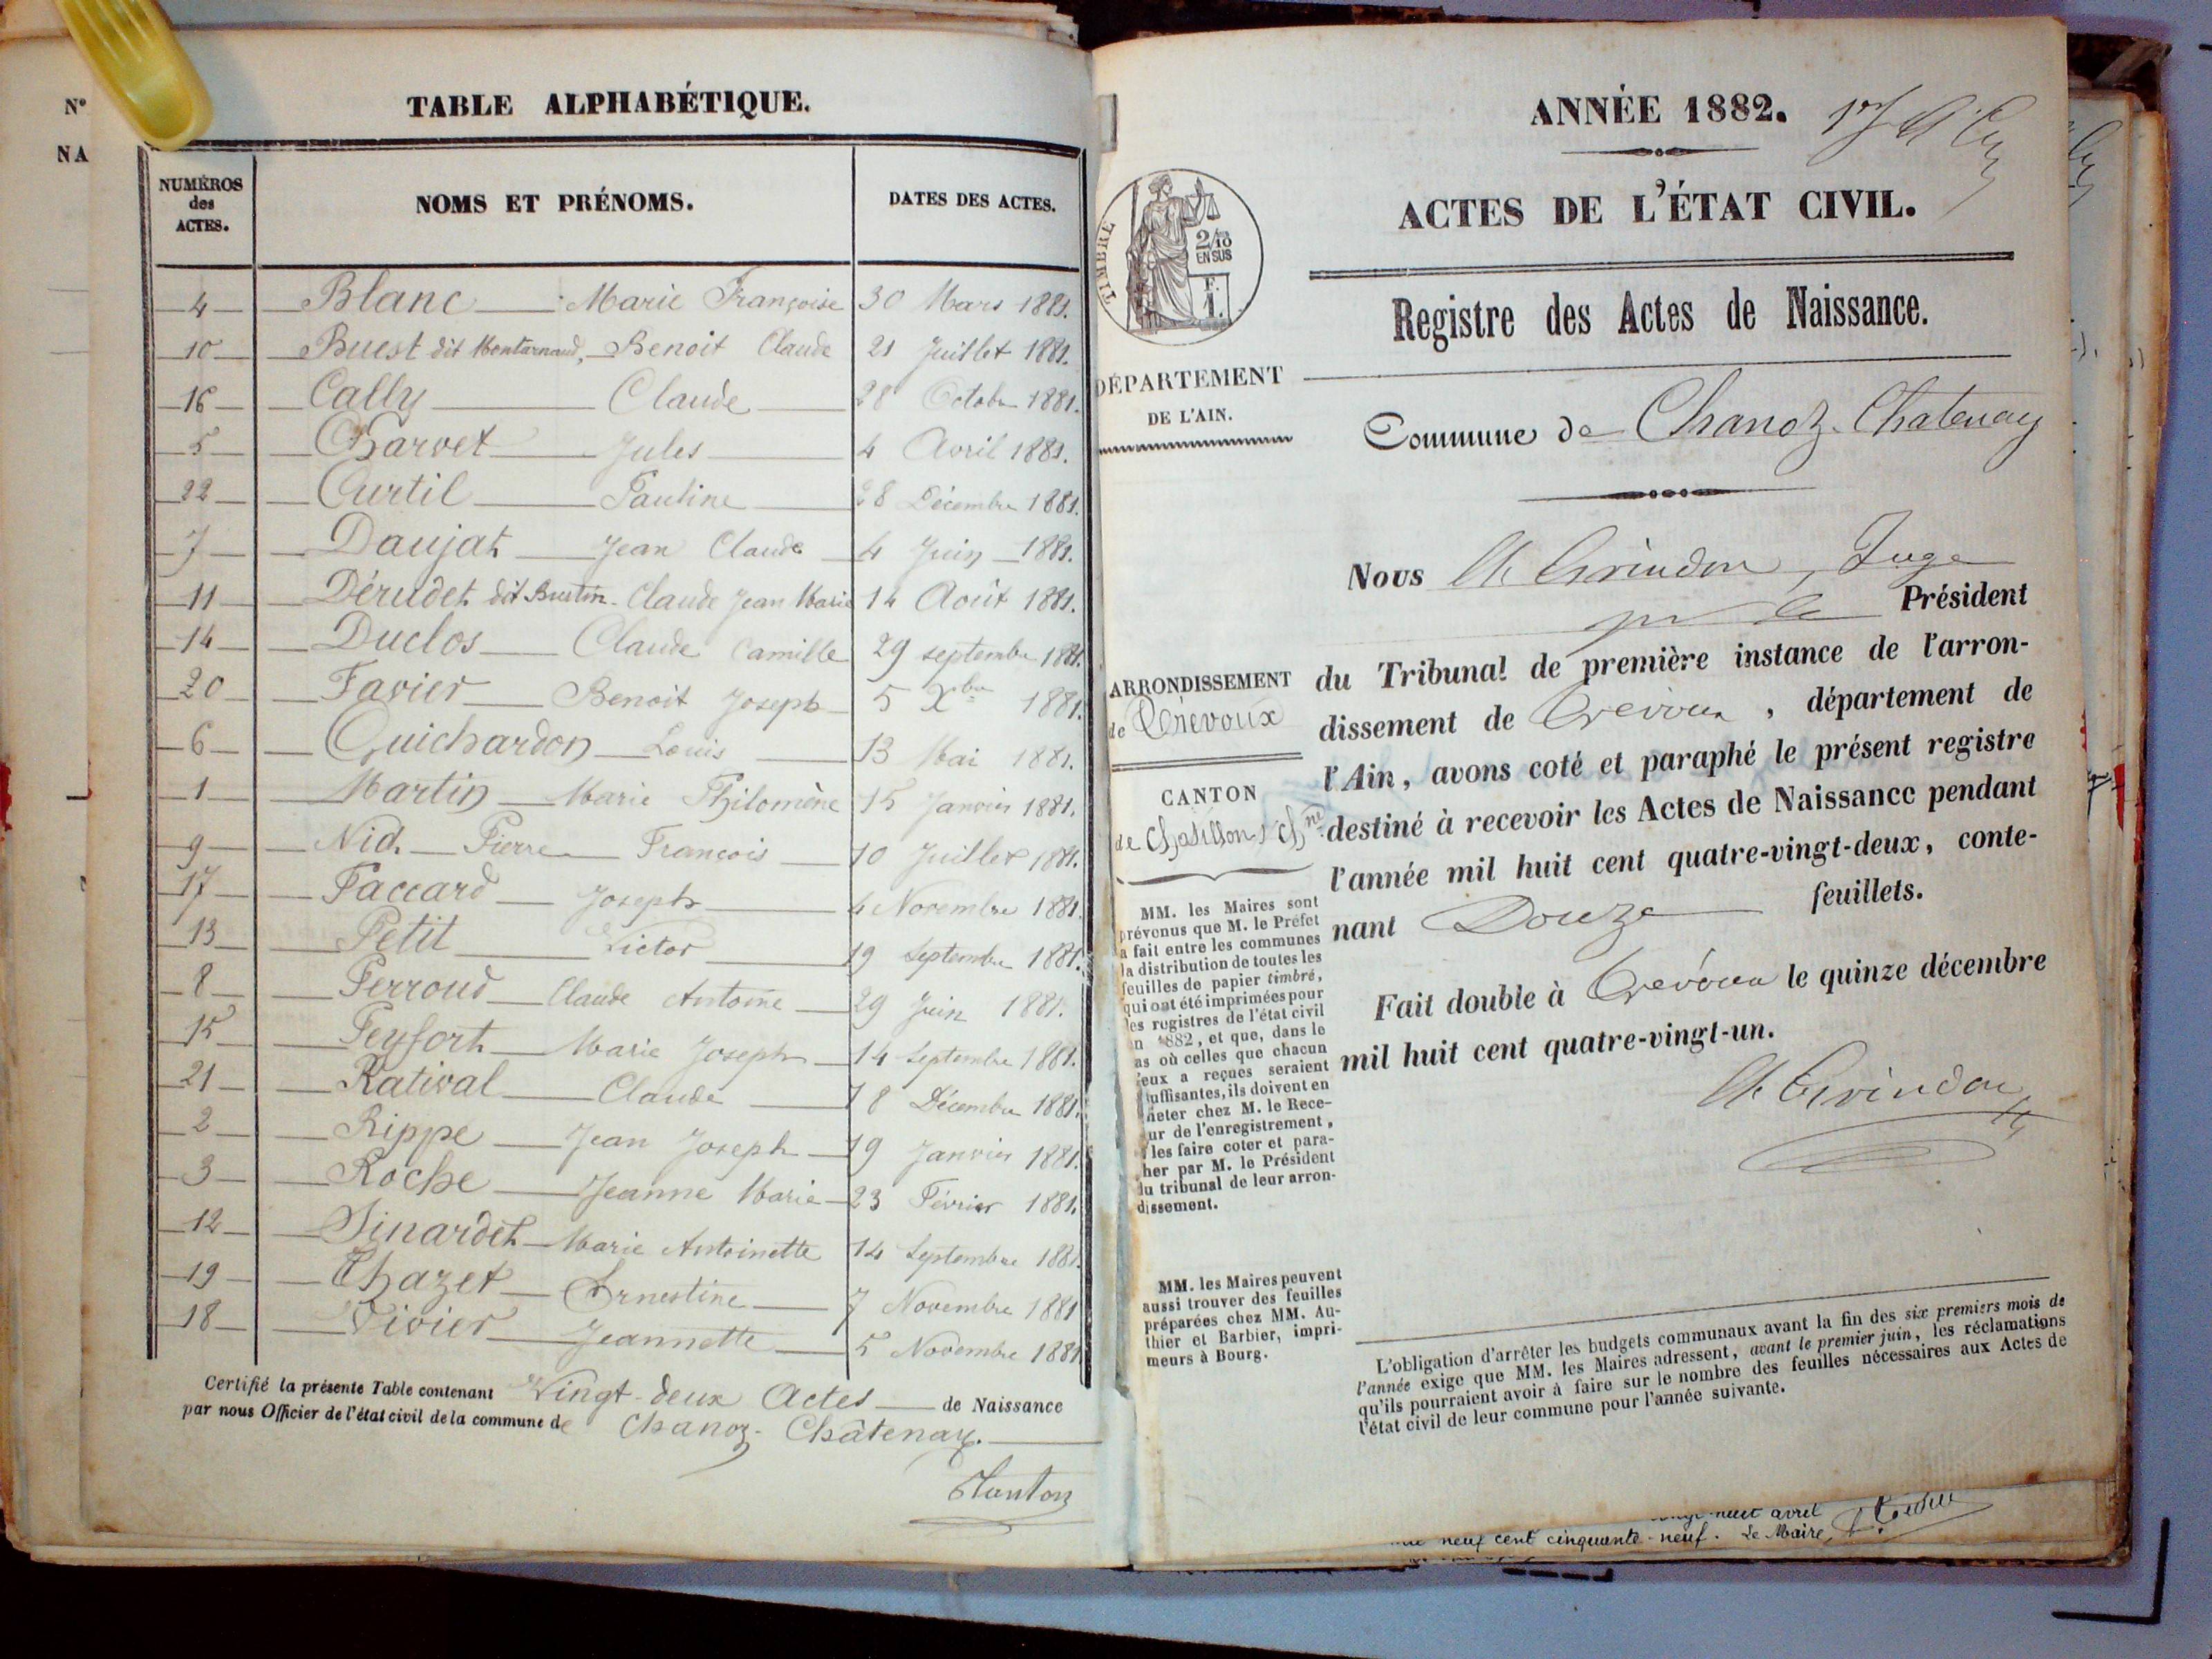 N°
NA
TABLE ALPHABÉTIQUE.
NUMÉROS des ACTES. NOMS ET PRÉNOMS. DATES DES ACTES.
4 Blanc Marie Françoise 30 Mars 1881.
10 Buest dit Montarnaud, Benoit Claude 21 Juillet 1881.
16 Cally Claude 28 Octobre 1881.
5 Charvet Jules 4 Avril 1881.
22 Curtil Pauline 28 Décembre 1881.
7 Daujat Jean Claude 4 Juin 1881.
11 Dérudet dit Bustin Claude Jean Marie 14 Août 1881.
14 Duclos Claude Camille 29 septembre 1881.
20 Favier Benoit Joseph 5 Xbre 1881.
6 Guichardon Louis 13 Mai 1881.
1 Martin Marie Philomène 15 Janvier 1881.
9 Nid. Pierre François 10 Juillet 1881.
17 Paccard Joseph 4 Novembre 1881.
13 Petit Victor 19 Septembre 1881.
8 Perroud Claude Antoine 29 Juin 1881.
15 Peysort Marie Joseph 14 Septembre 1881.
21 Ratival Claude 18 Décembre 1881.
2 Rippe Jean Joseph 19 Janvier 1881.
3 Roche Jeanne Marie 23 Février 1881.
12 Sinardet Marie Antoinette 14 Septembre 1881.
19 Thazet Ernestine 7 Novembre 1881
18 Vivier Jeannette 5 Novembre 1881
Certifié la présente Table contenant Vingt-deux Actes de Naissance
par nous Officier de l'état civil de la commune de Chanoz-Châtenay.
ANNÉE 1882.
ACTES DE L'ÉTAT CIVIL.
TIMBRE
2/10
EN SUS
F.
1.
Registre des Actes de Naissance.
DÉPARTEMENT
DE L'AIN.
Commune de Chanoz-Chatenay
Nous Grindon, Juge
pr le Président
ARRONDISSEMENT
de Trévoux
du Tribunal de première instance de l'arron-
dissement de Trévoux, département de
l'Ain, avons coté et paraphé le présent registre
destiné à recevoir les Actes de Naissance pendant
l'année mil huit cent quatre-vingt-deux, conte-
nant Douze feuillets.
CANTON
de Chatillon s/ Chne
Fait double à Trévoux le quinze décembre
mil huit cent quatre-vingt-un.
Grindon
MM. les Maires sont
prévenus que M. le Préfet
a fait entre les communes
la distribution de toutes les
feuilles de papier timbré,
qui ont été imprimées pour
les registres de l'état civil
n 1882, et que, dans le
as où celles que chacun
'eux a reçues seraient
suffisantes, ils doivent en
heter chez M. le Rece-
ur de l'enregistrement,
les faire coter et para-
her par M. le Président
du tribunal de leur arron-
dissement.
MM. les Maires peuvent
aussi trouver des feuilles
préparées chez MM. Au-
thier et Barbier, impri-
meurs à Bourg.
L'obligation d'arrêter les budgets communaux avant la fin des six premiers mois de
l'année exige que MM. les Maires adressent, avant le premier juin, les réclamations
qu'ils pourraient avoir à faire sur le nombre des feuilles nécessaires aux Actes de
l'état civil de leur commune pour l'année suivante.
huit avril
neuf cent cinquante-neuf. Le Maire,